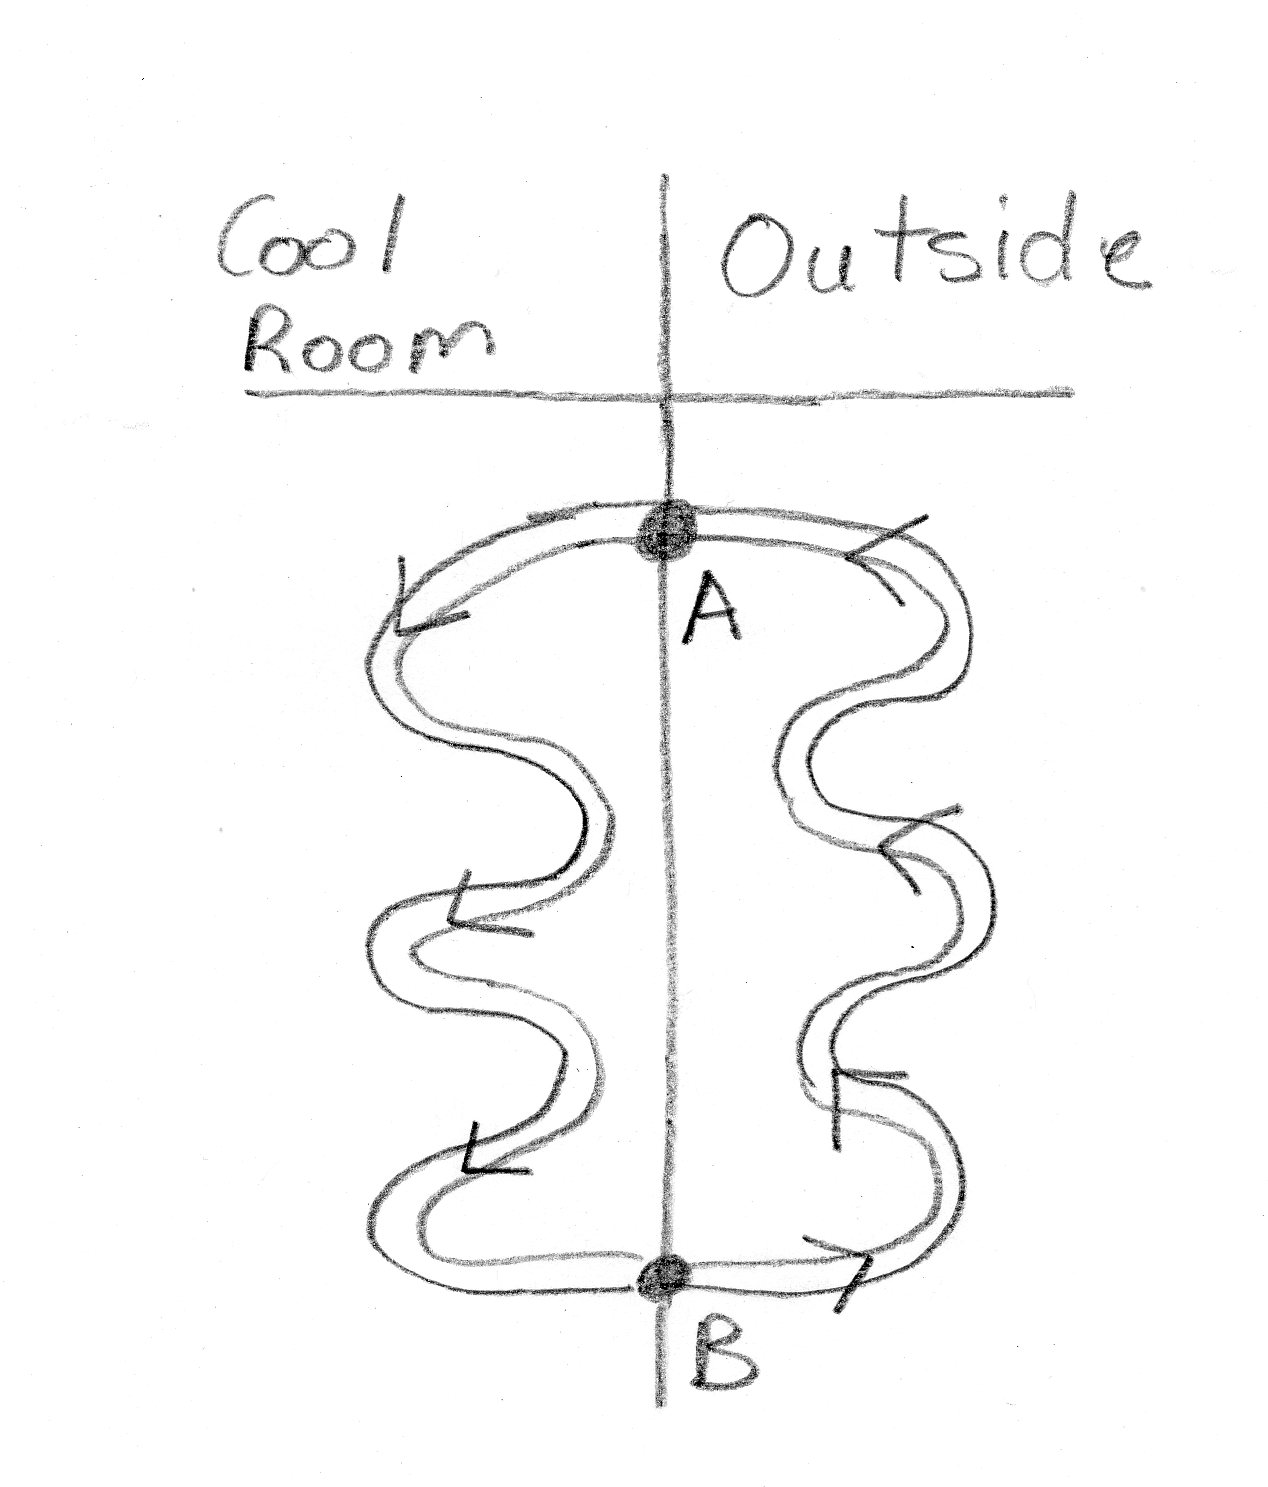 Cool
Room
Outside
A
B